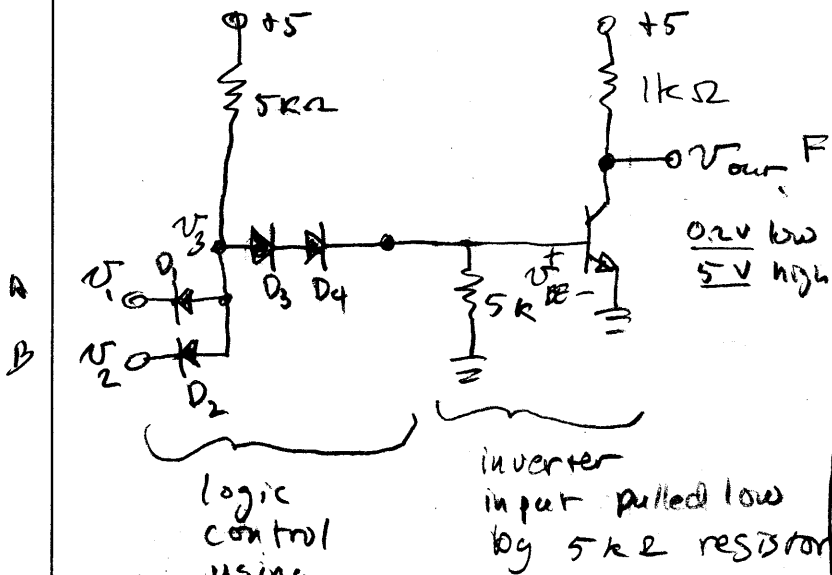 +5
+5
5KΩ
1kΩ
Vout F
V3
0.2V low
5V high
D1
D3 D4
A V1
VBE
+
-
5K
B V2
D2
logic
control
using
inverter
input pulled low
by 5kΩ resistor